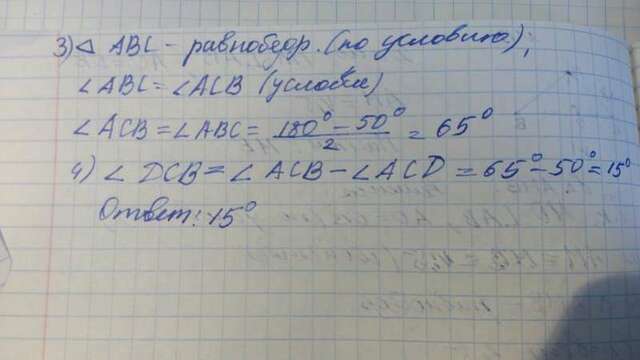 3) △ ABC - равнобедр. (по условию);
∠ABC = ∠ACB (условия)
∠ACB = ∠ABC = (180° - 50°)/2 = 65°
4) ∠DCB = ∠ACB - ∠ACD = 65° - 50° = 15°
Ответ: 15°